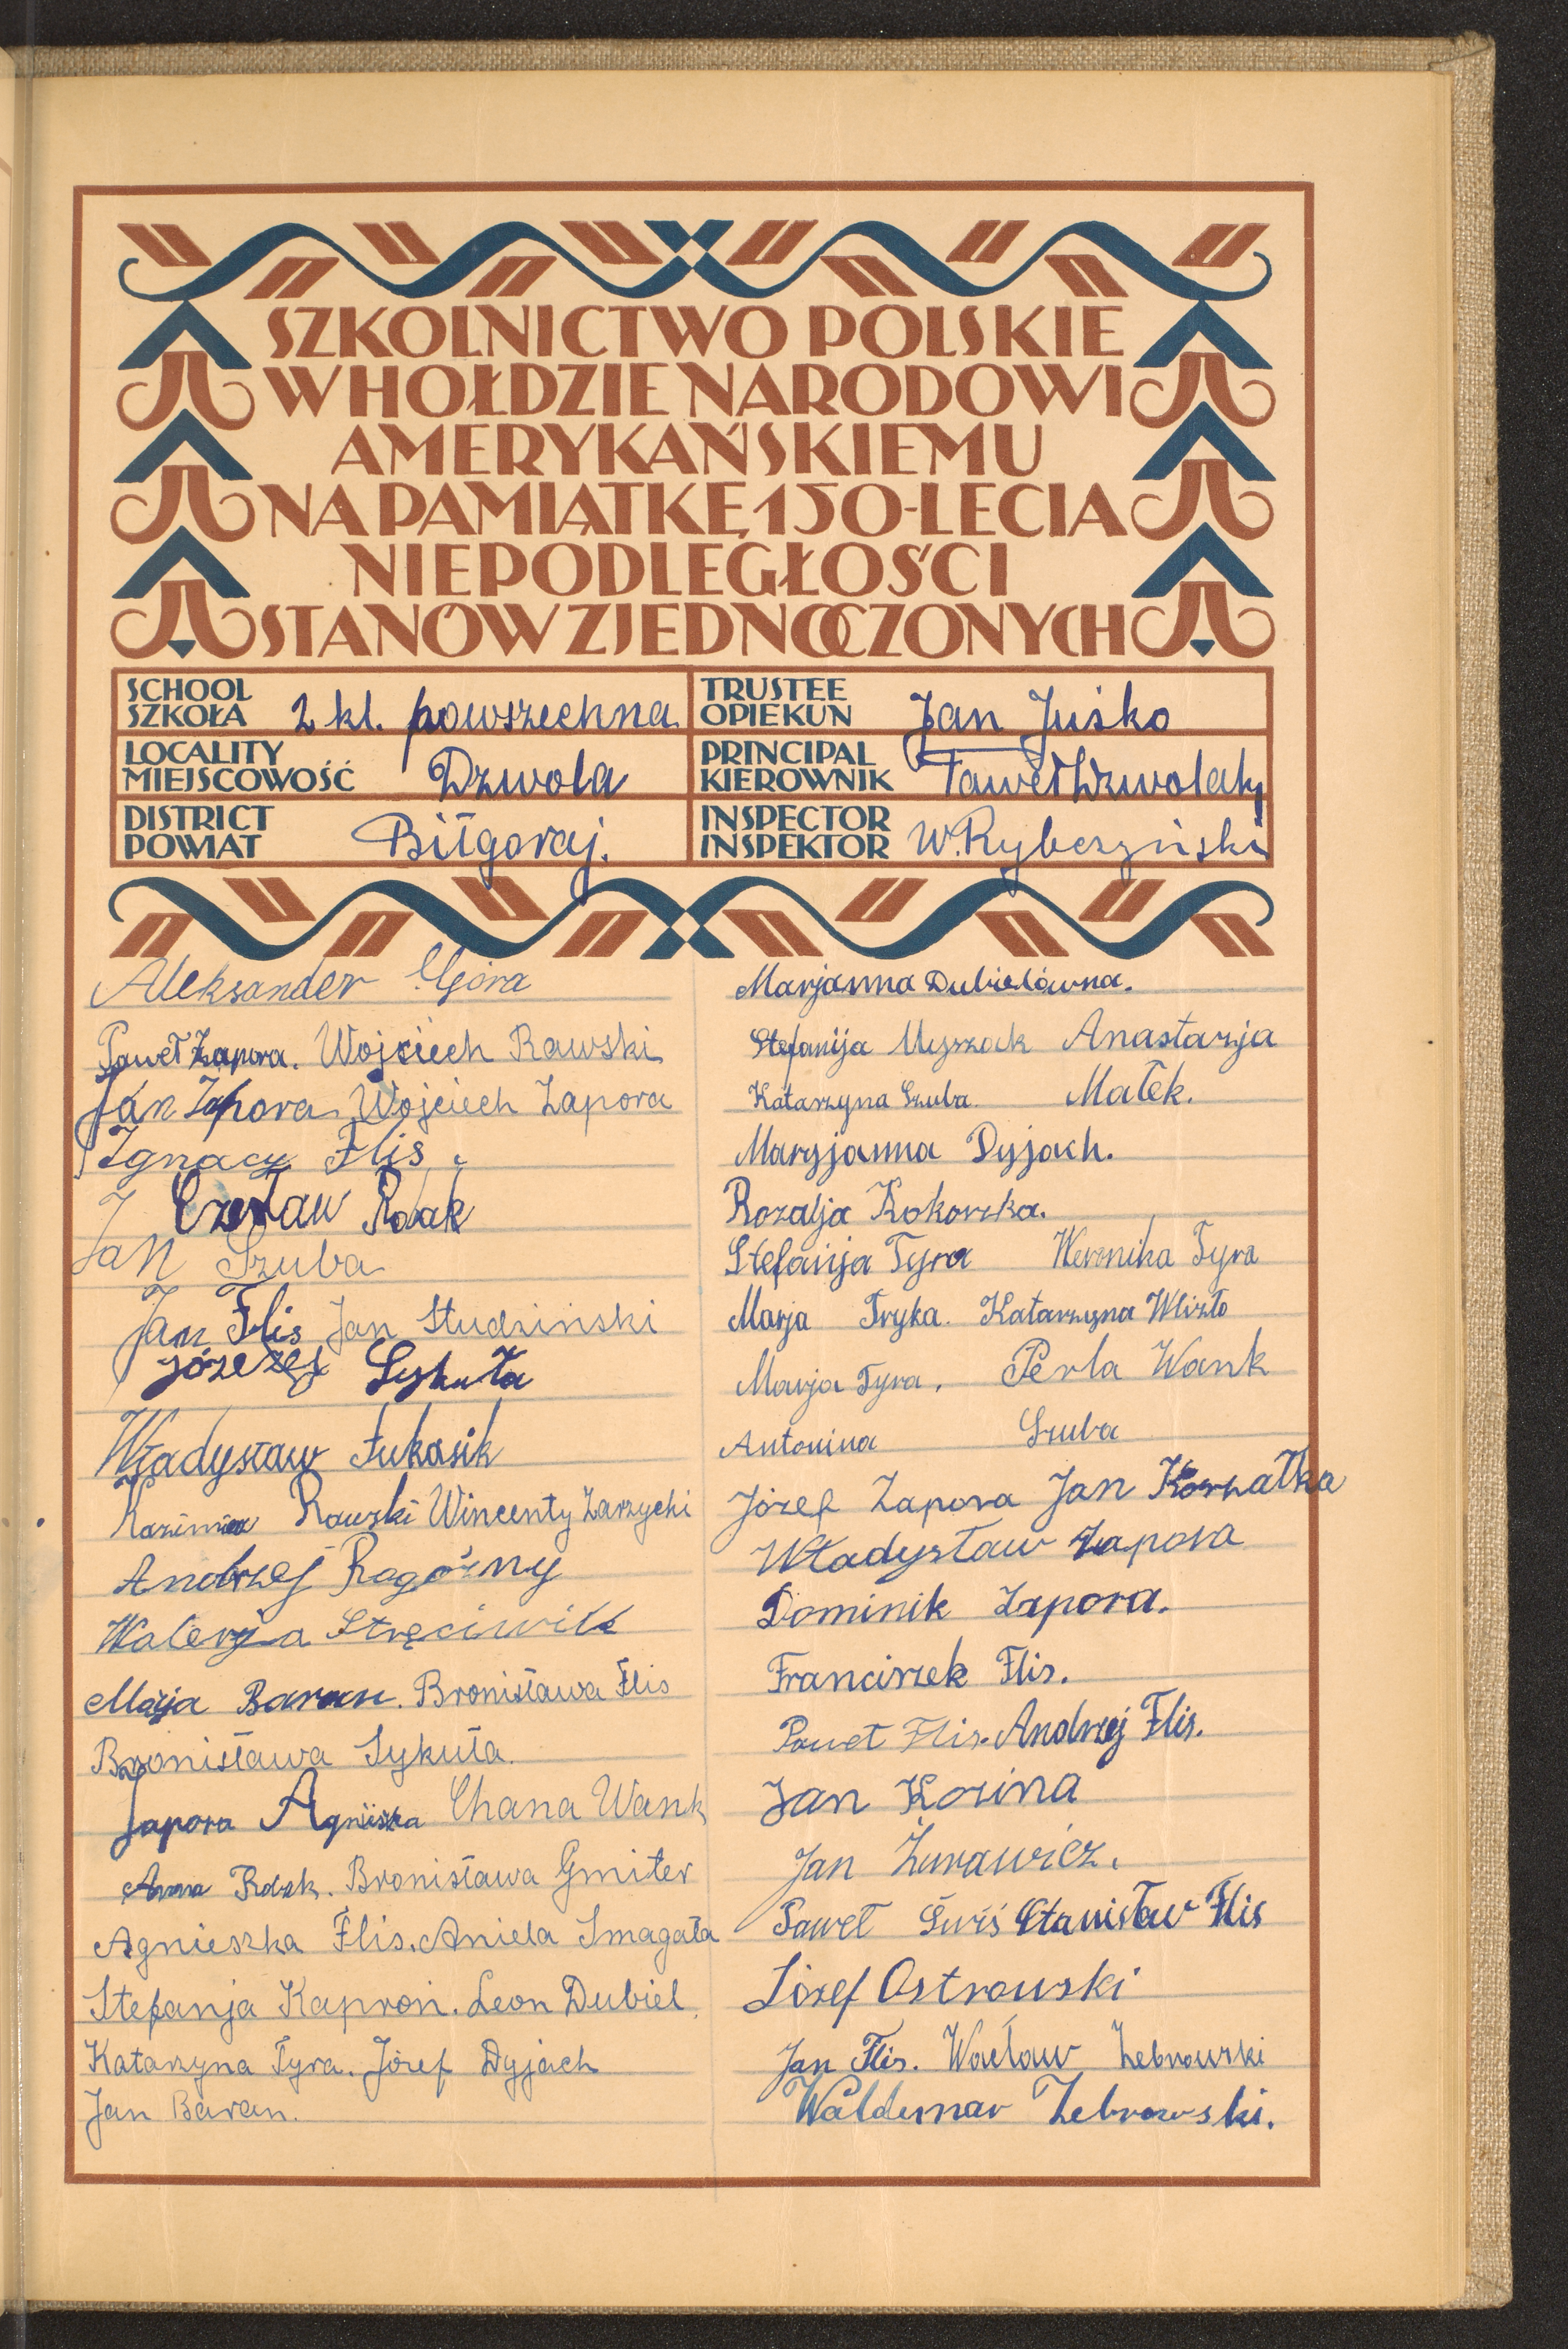 SZKOLNICTWO POLSKIE
W HOŁDZIE NARODOWI
AMERYKAŃSKIEMU
NA PAMIĄTKĘ 150-LECIA
NIEPODLEGŁOŚCI
STANÓW ZJEDNOCZONYCH
SCHOOL
SZKOŁA 2 kl. powszechna
TRUSTEE
OPIEKUN Jan Juśko
LOCALITY
MIEJSCOWOŚĆ Dzwola
PRINCIPAL
KIEROWNIK Paweł Dzwolak
DISTRICT
POWIAT Biłgoraj.
INSPECTOR
INSPEKTOR W. Rybczyński
Aleksander Góra
Paweł Zapora. Wojciech Rawski
Jan Zapora Wojciech Zapora
Ignacy Flis.
Czesław Rdak
Jan Szuba
Jan Flis Jan Studziński
Józef Sykuła
Władysław Łukasik
Kazimierz Rawski Wincenty Zarzycki
Andrzej Rogoźny
Walerja Stręciwilk
Marja Baran. Bronisława Flis
Bronisława Sykuła.
Zapora Agnieszka Chana Wank
Anna Rdak. Bronisława Gmiter
Agnieszka Flis. Aniela Smagała
Stefanja Kapron. Leon Dubiel
Katarzyna Tyra. Józef Dyjach
Jan Baran.
Marjanna Dubielówna.
Stefanija Myszak Anastazja
Katarzyna Szuba. Małek.
Maryjanna Dyjach.
Rozalja Kokoszka.
Stefanija Tyra Weronika Tyra
Marja Tryka. Katarzyna Wlizło
Marja Tyra. Perla Wank
Antonina Szuba
Józef Zapora Jan Koszałka
Władysław Zapora
Dominik Zapora.
Franciszek Flis.
Paweł Flis. Andrzej Flis.
Jan Kozina
Jan Żurawicz.
Paweł Świś Stanisław Flis
Józef Ostrowski
Jan Flis. Wacław Żebrowski
Waldemar Żebrowski.